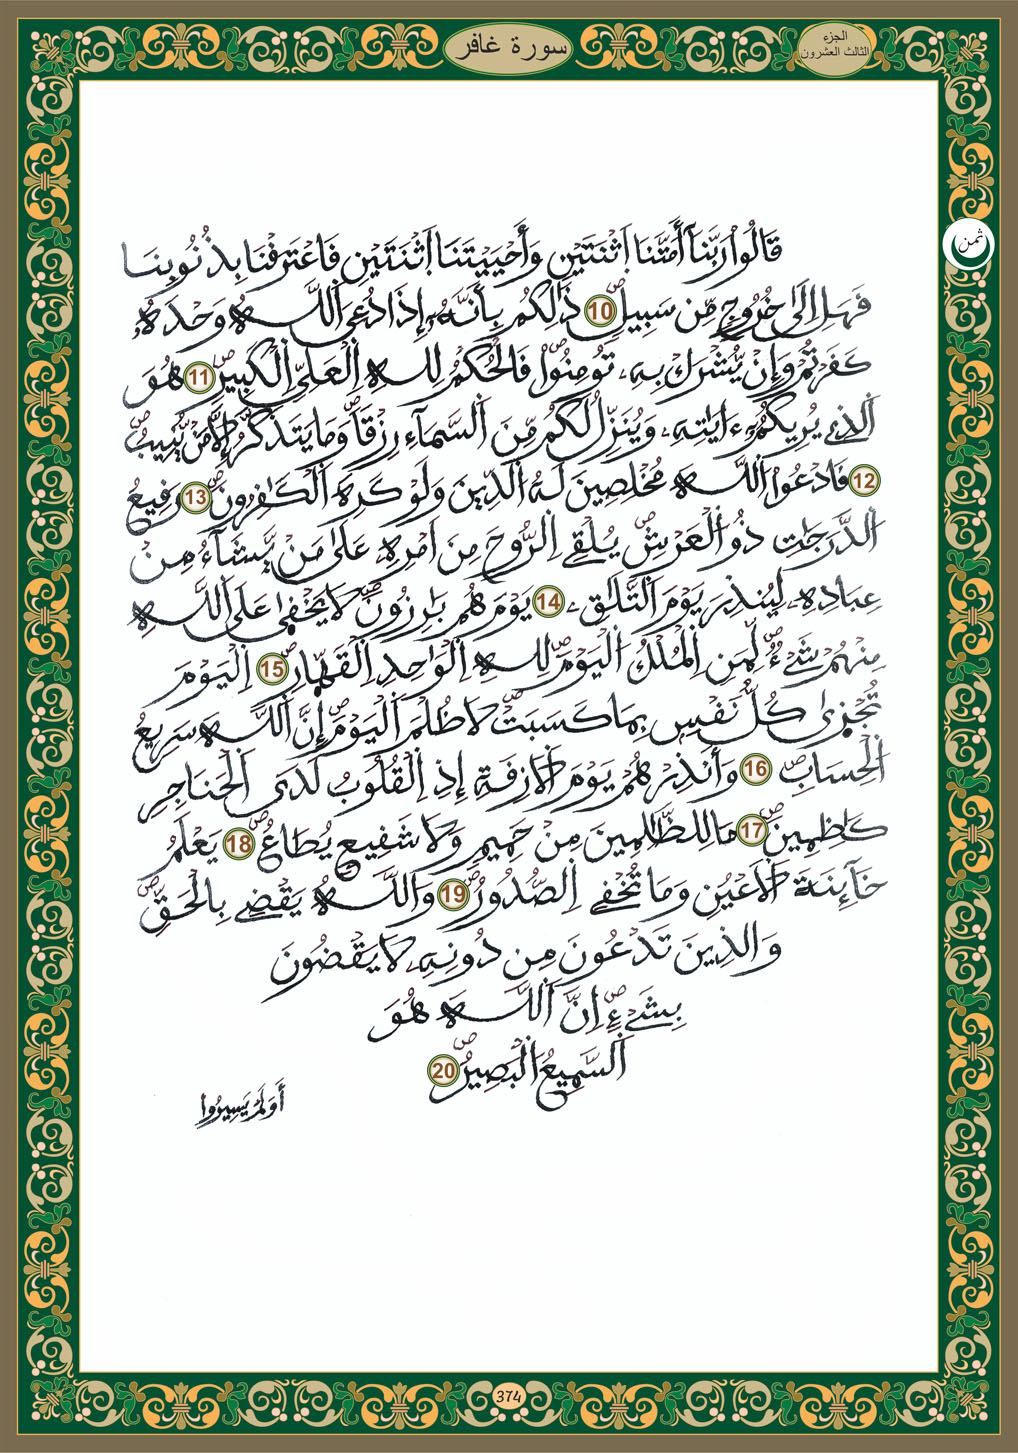 الجزء
الثالث العشرون
سورة غافر
ثمن
قَالُواْ رَبَّنَآ أَمَتَّنَا اَثْنَتَيْنِ وَأَحْيَيْتَنَا اَثْنَتَيْنِ فَاعْتَرَفْنَا بِذُنُوبِنَا
فَهَلِ اِلَىٰ خُرُوجٍ مِّن سَبِيلٍ 10 ذَٰلِكُم بِأَنَّهُۥٓ إِذَا دُعِيَ اَللَّهُ وَحْدَهُۥ
كَفَرْتُمْ وَإِنْ يُّشْرَكْ بِهِۦ تُومِنُواْ فَالْحُكْمُ لِلهِ اِلْعَلِيِّ اِلْكَبِيرِ 11 هُوَ
اَلذِے يُرِيكُمُۥٓ ءَايَٰتِهِۦ وَيُنَزِّلُ لَكُم مِّنَ اَلسَّمَآءِ رِزْقاً وَمَا يَتَذَكَّرُ إِلَّا مَنْ يُّنِيبُ
12 فَادْعُواْ اُللَّهَ مُخْلِصِينَ لَهُ اُلدِّينَ وَلَوْ كَرِهَ اَلْكَٰفِرُونَ 13 رَفِيعُ
اُلدَّرَجَٰتِ ذُو اُلْعَرْشِ يُلْقِے اِلرُّوحَ مِنَ اَمْرِهِۦ عَلَىٰ مَنْ يَّشَآءُ مِنْ
عِبَادِهِۦ لِيُنذِرَ يَوْمَ اَلتَّلَٰقِۦ 14 يَوْمَ هُم بَٰرِزُونَ لَا يَخْفَىٰ عَلَى اَللَّهِ
مِنْهُمْ شَےْءٌ لِّمَنِ اِلْمُلْكُ اُلْيَوْمَ لِلهِ اِلْوَٰحِدِ اِلْقَهَّارِ 15 اِلْيَوْمَ
تُجْزَىٰ كُلُّ نَفْسٍ بِمَا كَسَبَتْ لَا ظُلْمَ اَلْيَوْمَ إِنَّ اَللَّهَ سَرِيعُ
اُلْحِسَابِ 16 وَأَنذِرْهُمْ يَوْمَ اَلَازِفَةِ إِذِ اِلْقُلُوبُ لَدَى اَلْحَنَاجِرِ
كَٰظِمِينَ 17 مَا لِلظَّٰلِمِينَ مِنْ حَمِيمٍ وَلَا شَفِيعٍ يُطَاعُ 18 يَعْلَمُ
خَآئِنَةَ اَلَاعْيُنِ وَمَا تُخْفِے اِلصُّدُورُ 19 وَاللَّهُ يَقْضِے بِالْحَقِّ
وَالذِينَ تَدْعُونَ مِن دُونِهِۦ لَا يَقْضُونَ
بِشَےْءٍ اِنَّ اَللَّهَ هُوَ
اَلسَّمِيعُ اُلْبَصِيرُ 20
أَوَلَمْ يَسِيرُوا
374